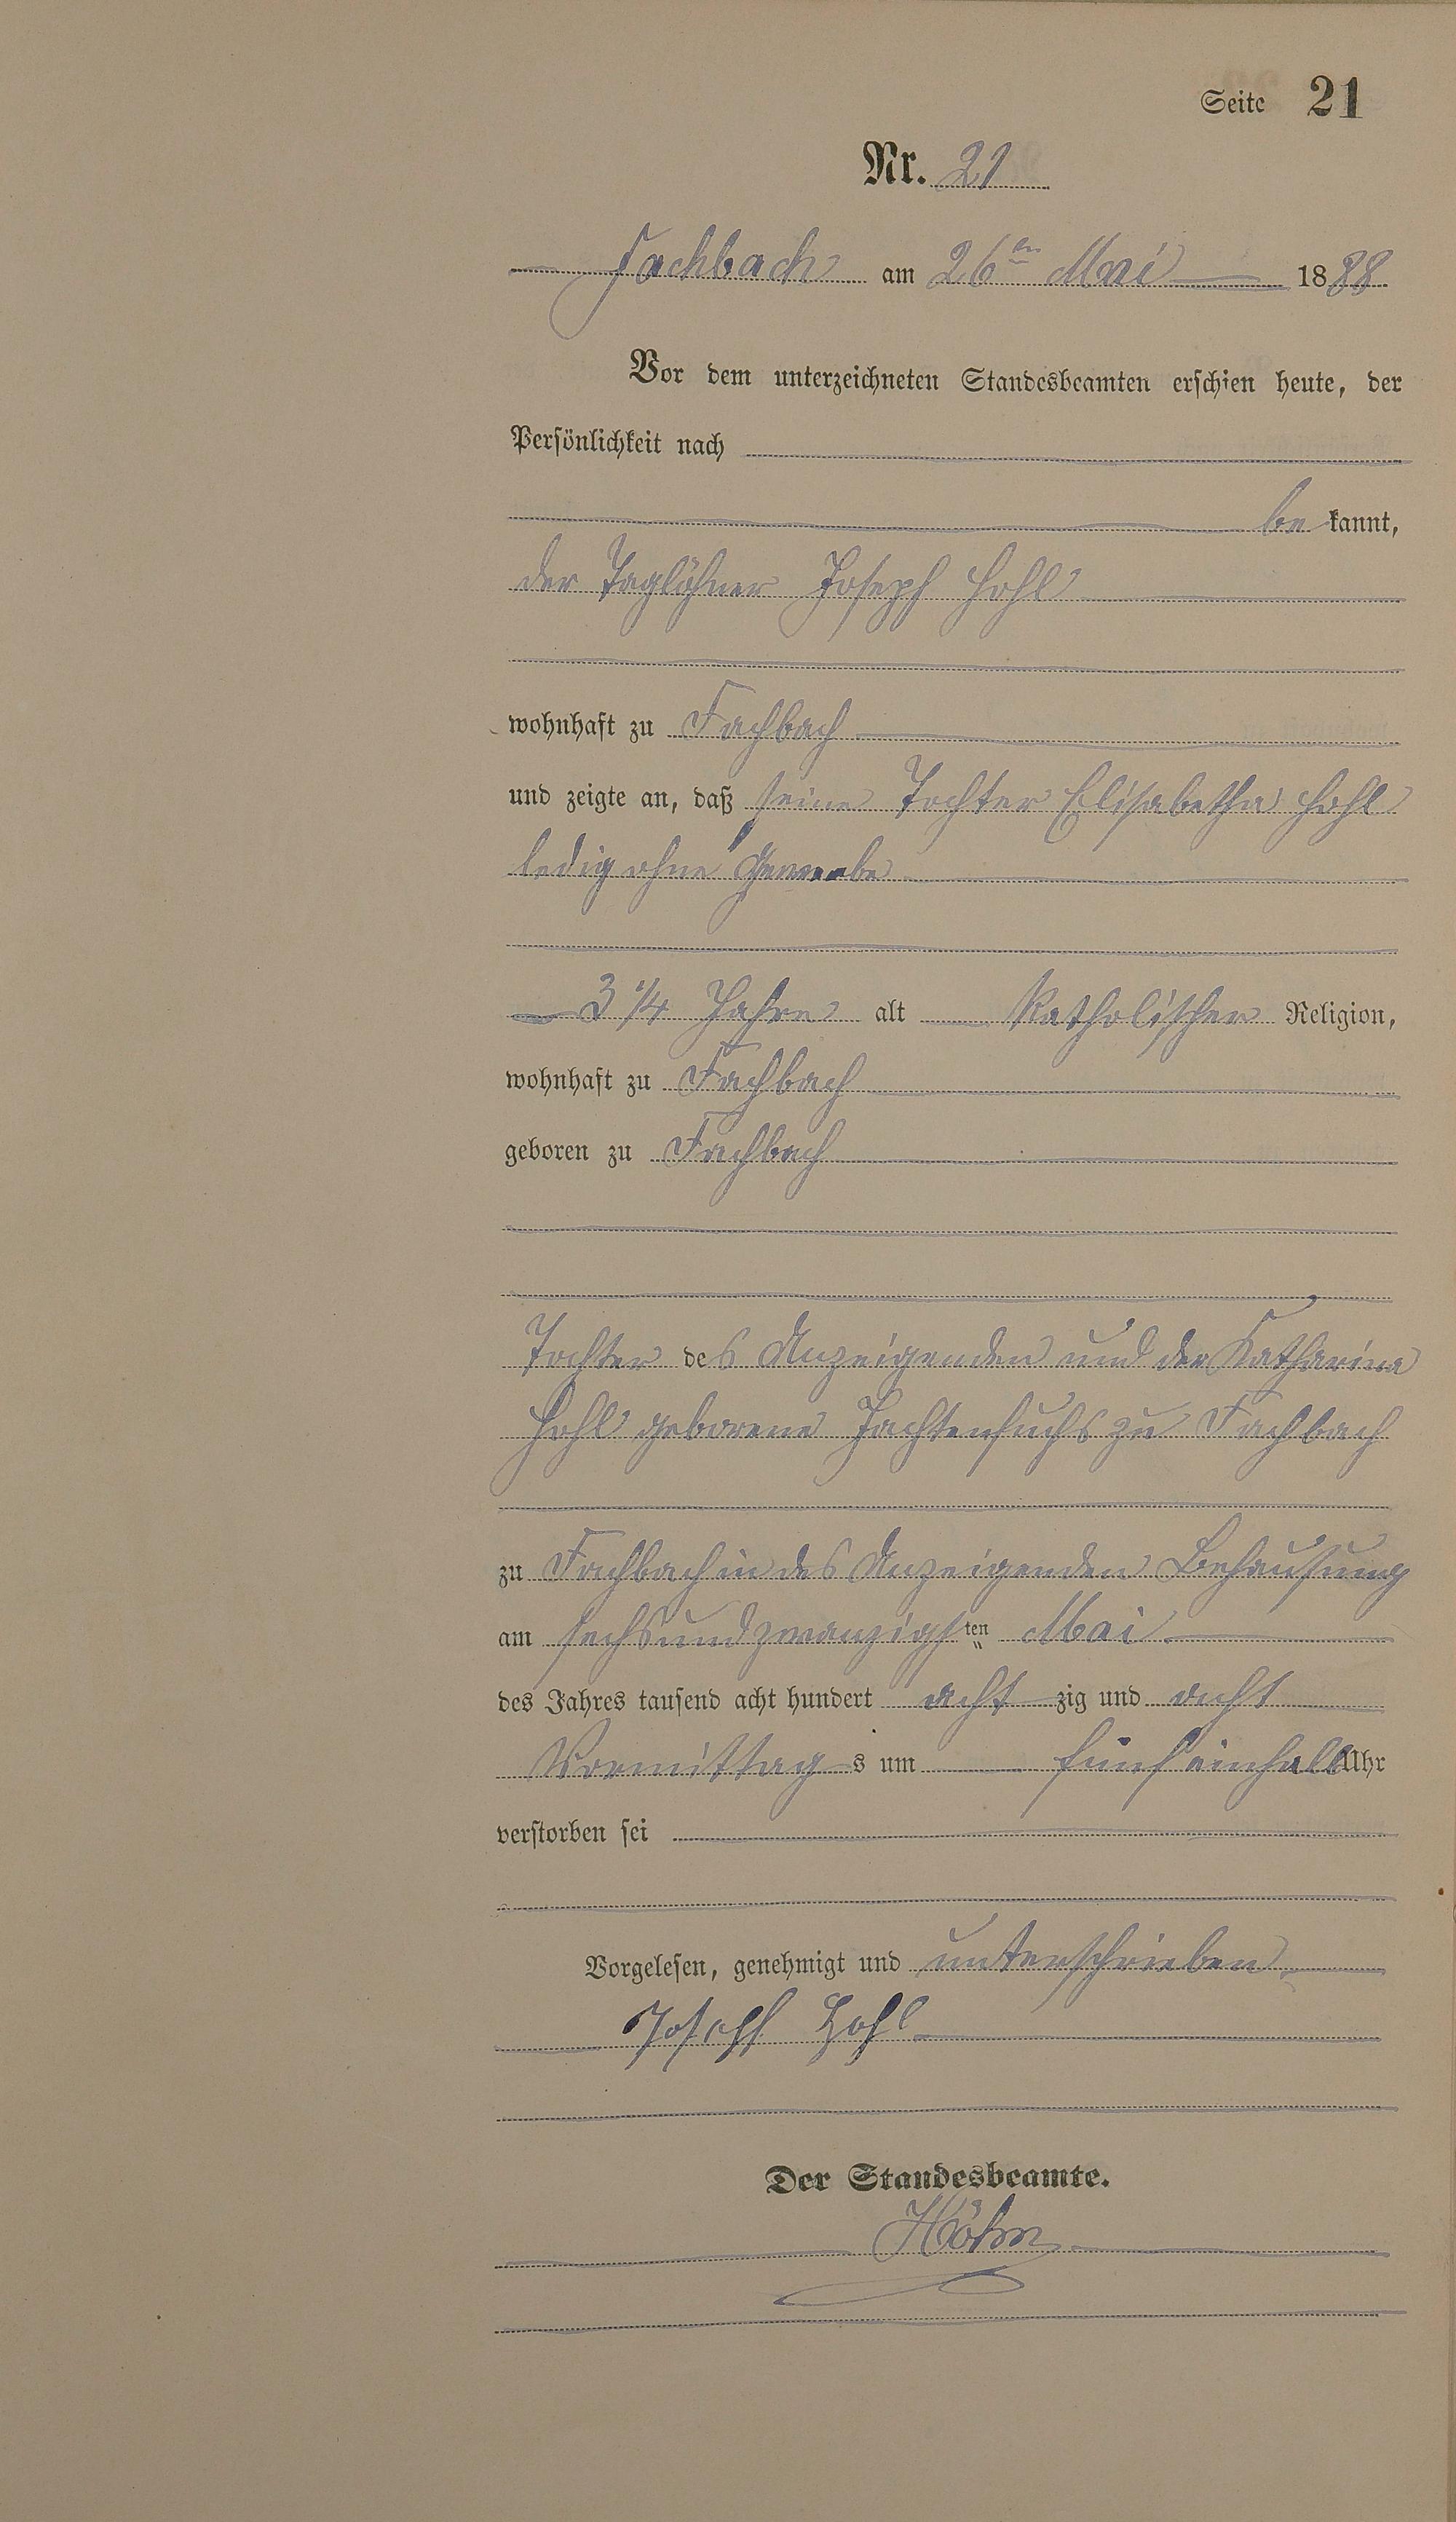 Seite 21
Nr. 21
Fachbach am 26ten Mai 1888
Vor dem unterzeichneten Standesbeamten erschien heute, der
Persönlichkeit nach
be kannt,
der Taglöhner Joseph Hohl
wohnhaft zu Fachbach
und zeigte an, daß seine Tochter Elisabetha Hohl
ledig ohne Gewerbe
3 1/4 Jahre alt Katholischer Religion,
wohnhaft zu Fachbach
geboren zu Fachbach
Tochter des Anzeigenden und der Katharina
Hohl geborene Jachtenfuchs zu Fachbach
zu Fachbach in des Anzeigenden Behausung
am sechsundzwanzigsten Mai
des Jahres tausend acht hundert acht zig und acht
Vormittags um fünf einhalb Uhr
verstorben sei
Vorgelesen, genehmigt und unterschrieben
Joseph Hohl
Der Standesbeamte.
Höhn